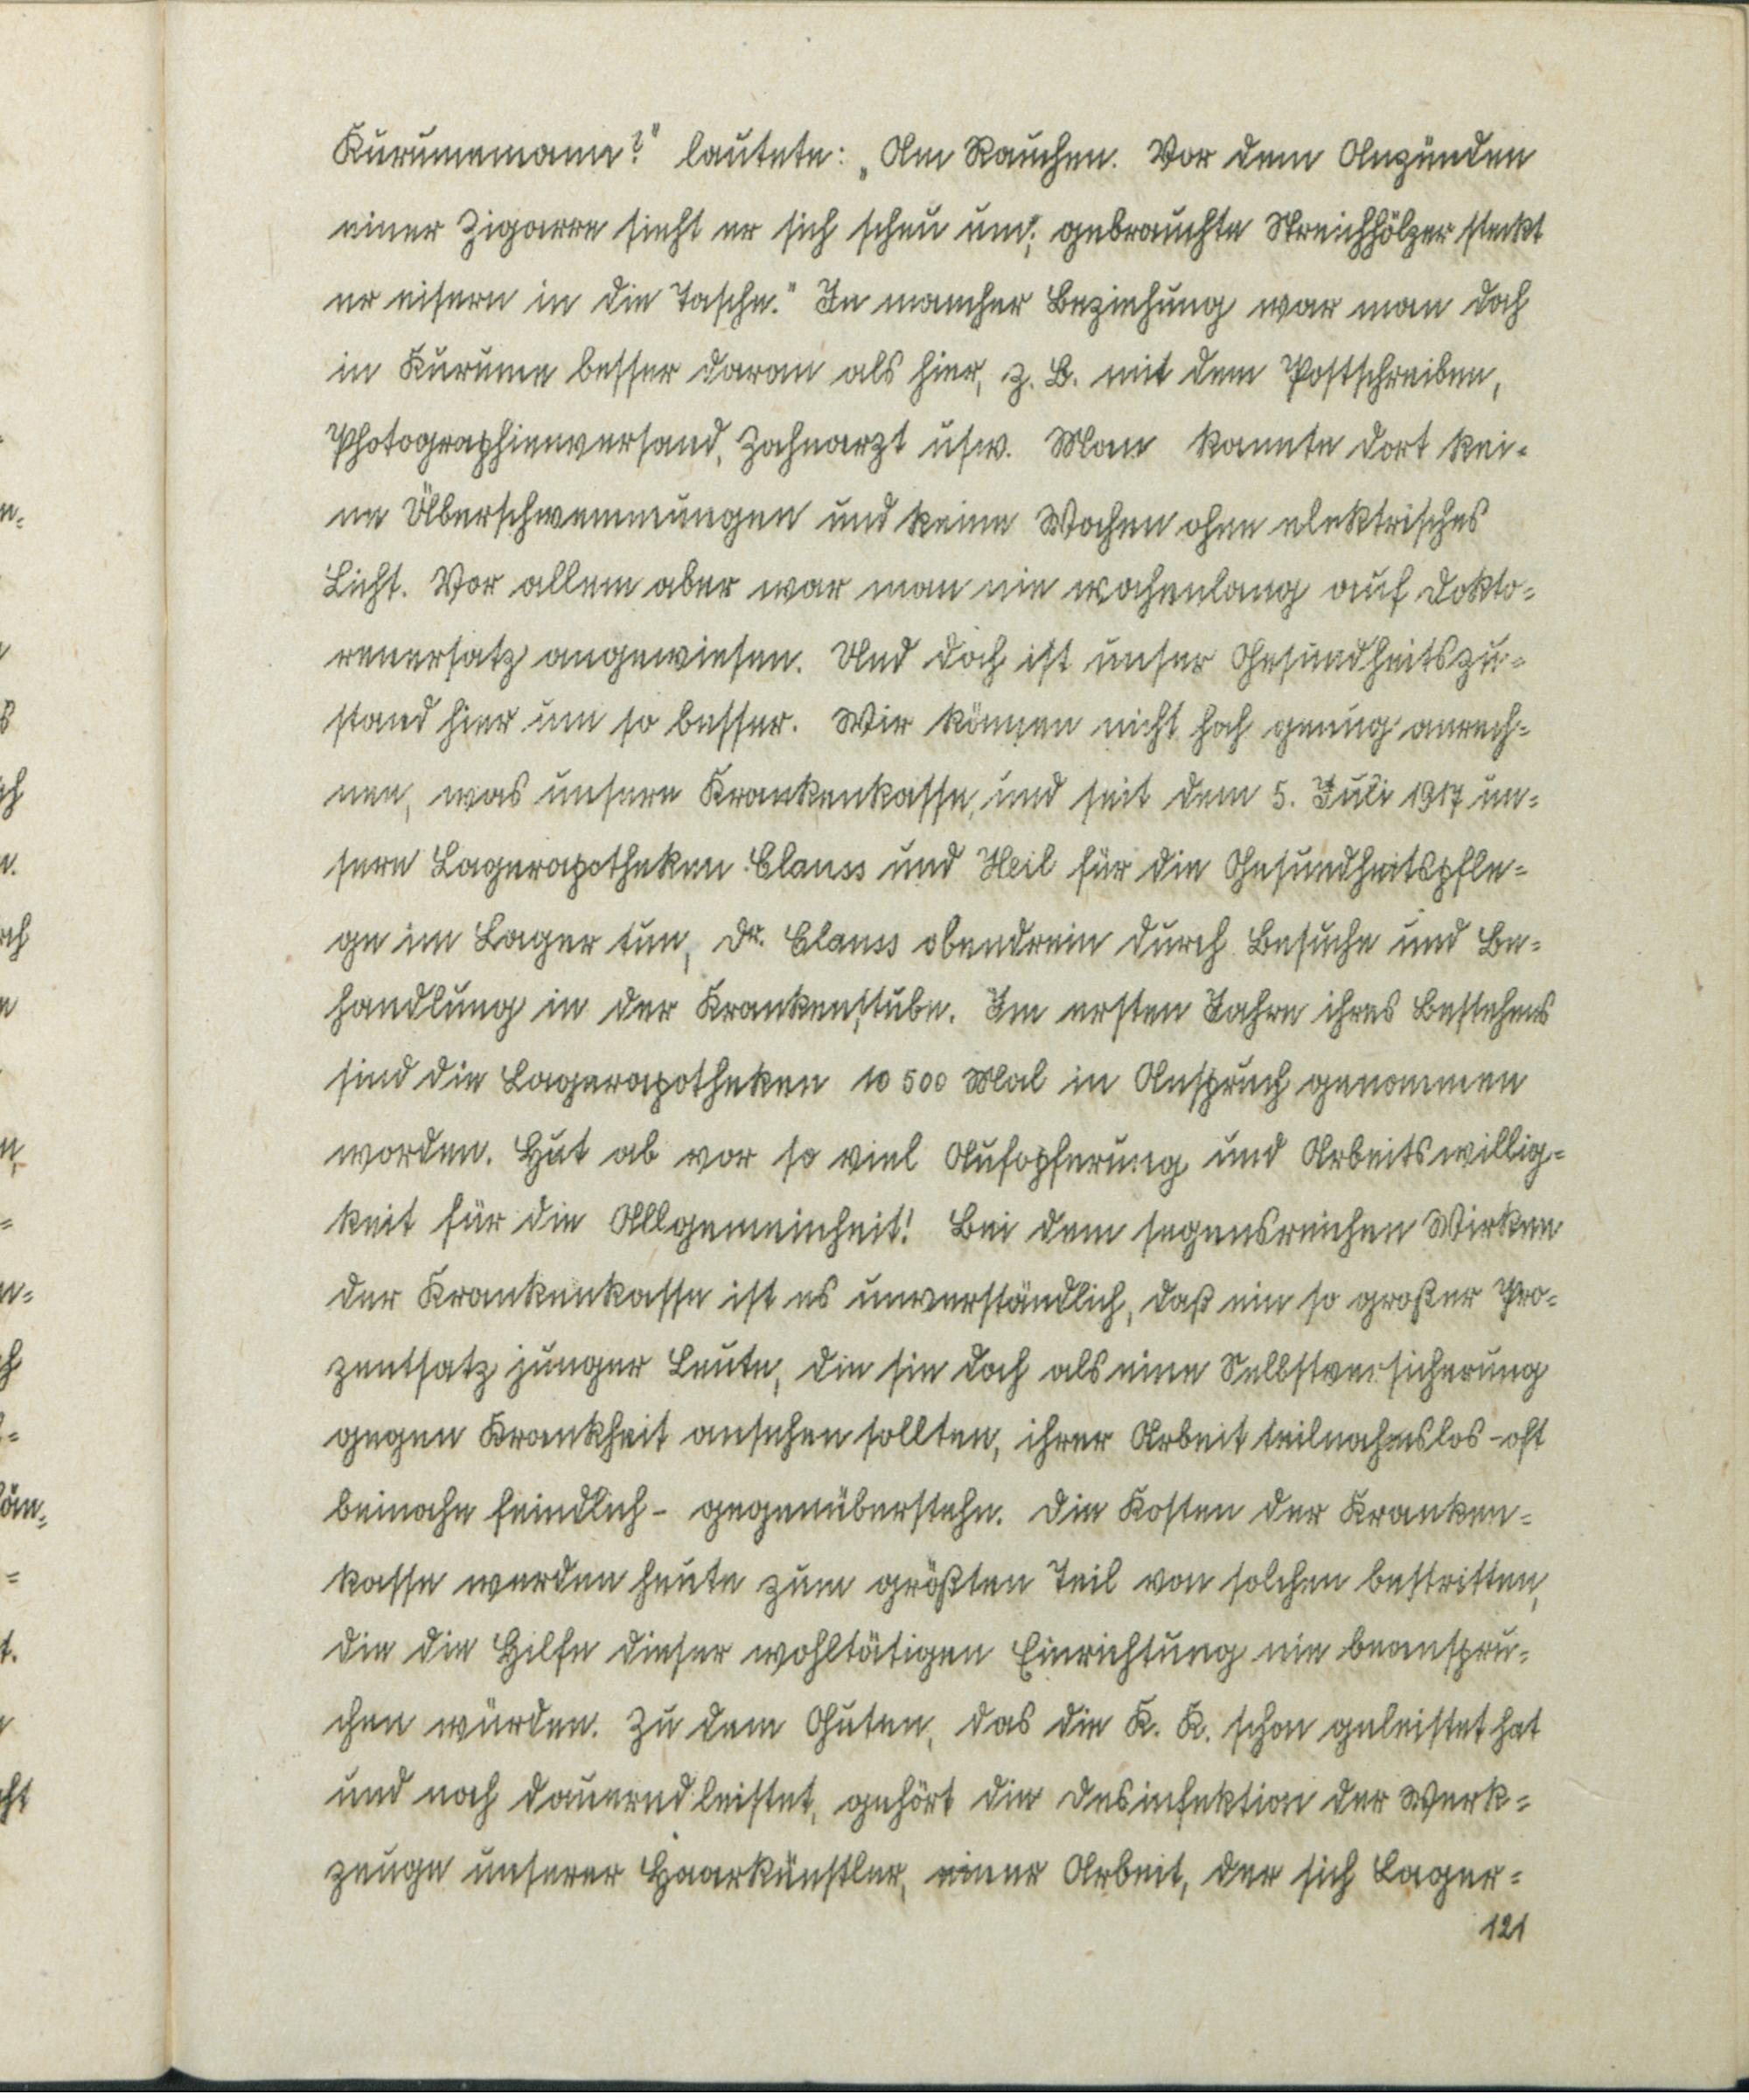 Kurumemann?" lautete: „Am Rauchen. Vor dem Anzünden
einer Zigarre sieht er sich scheu um; gebrauchte Streichhölzer steckt
er eisern in die Tasche." In mancher Beziehung war man doch
in Kurume besser daran als hier, z. B. mit dem Postschreiben,
Photographienversand, Zahnarzt usw. Man kannte dort kei=
ne Überschwemmungen und keine Wochen ohne elektrisches
Licht. Vor allem aber war man nie wochenlang auf Dokto=
renersatz angewiesen. Und doch ist unser Gesundheitszu=
stand hier um so besser. Wir können nicht hoch genug anrech=
nen, was unsere Krankenkasse, und seit dem 5. Juli 1917 un=
sere Lagerapotheken Clauss und Heil für die Gesundheitspfle=
ge im Lager tun, Dr. Clauss obendrein durch Besuche und Be=
handlung in der Krankenstube. Im ersten Jahre ihres Bestehens
sind die Lagerapotheken 10 500 Mal in Anspruch genommen
worden. Hut ab vor so viel Aufopferung und Arbeitswillig=
keit für die Allgemeinheit! Bei dem segensreichen Wirken
der Krankenkasse ist es unverständlich, daß ein so großer Pro=
zentsatz junger Leute, die sie doch als eine Selbstversicherung
gegen Krankheit ansehen sollten, ihrer Arbeit teilnahmslos - oft
beinahe feindlich - gegenüberstehn. Die Kosten der Kranken=
kasse werden heute zum größten Teil von solchen bestritten,
die die Hilfe dieser wohltätigen Einrichtung nie beanspru=
chen würden. Zu dem Guten, das die K. K. schon geleistet hat
und noch dauernd leistet, gehört die Desinfektion der Werk=
zeuge unserer Haarkünstler, einer Arbeit, der sich Lager=
121